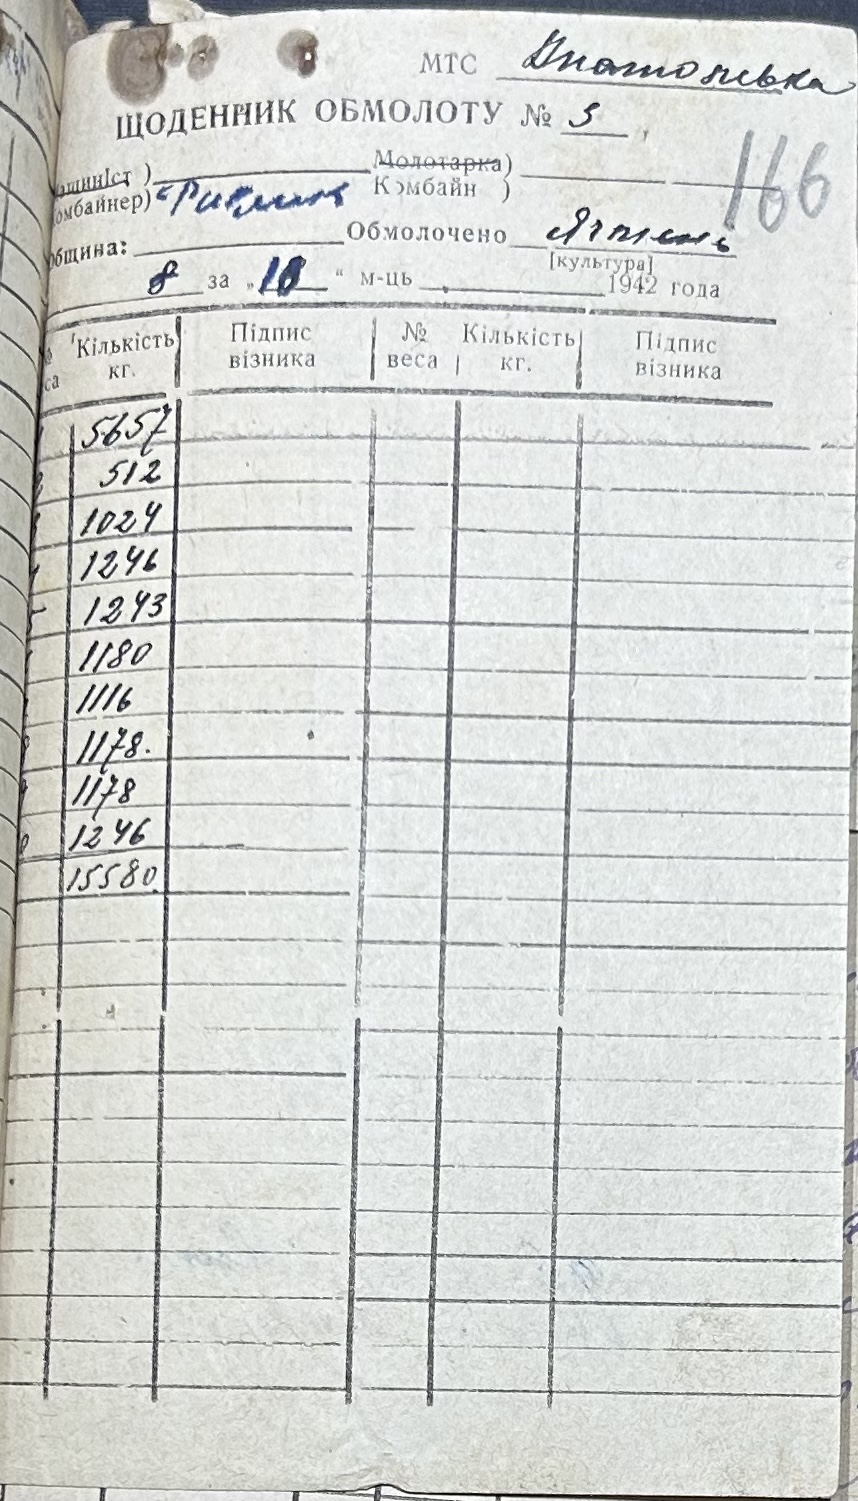 МТС Гнатовська
ЩОДЕННИК ОБМОЛОТУ № 5
166
ашиніст ) Молотарка)
омбайнер) Комбайн )
община: Обмолочено Ячмень
[культура]
8 за „10“ м-ць 1942 года
Кількість Підпис № Кількість Підпис
са кг. візника веса кг. візника
5657
512
1024
1246
1243
1180
1116
1178.
1178
1246
15580